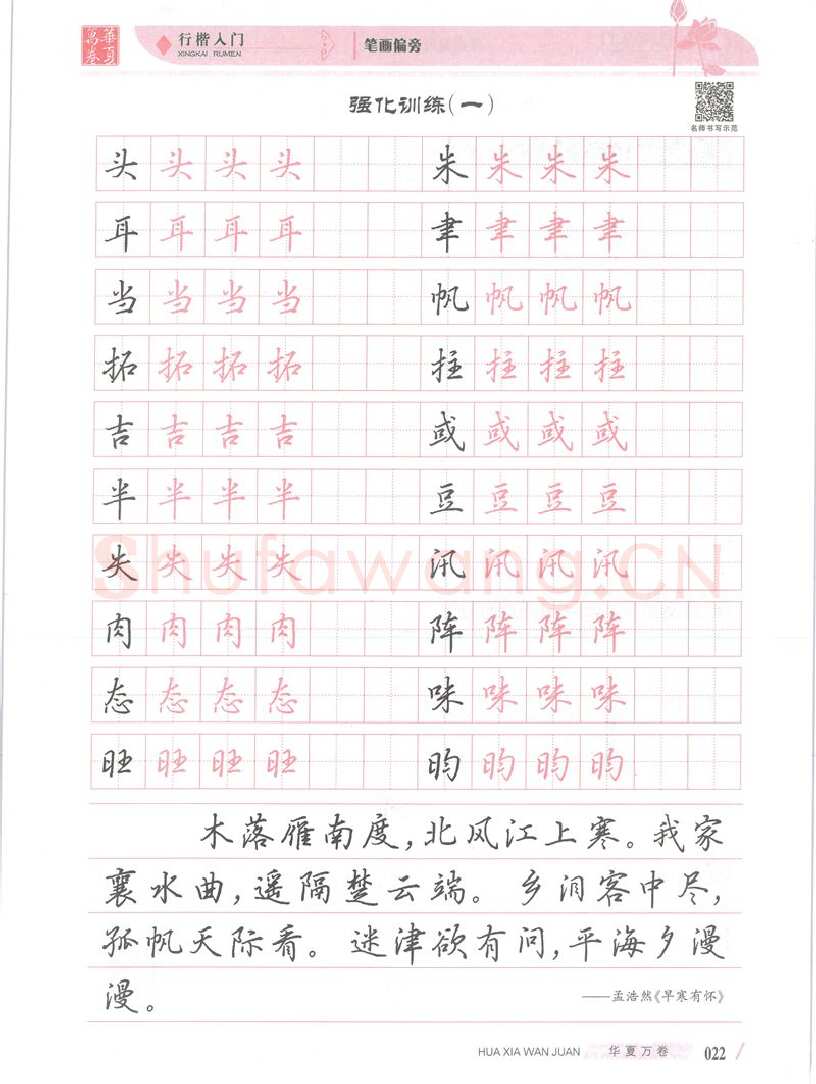 華夏萬卷
行楷入门
XINGKAI RUMEN
笔画偏旁
强化训练(一)
名师书写示范
头头头头 朱朱朱朱
耳耳耳耳 聿聿聿聿
当当当当 帆帆帆帆
拓拓拓拓 拄拄拄拄
吉吉吉吉 或或或或
半半半半 豆豆豆豆
失失失失 汛汛汛汛
Shufawang.CN
肉肉肉肉 阵阵阵阵
态态态态 咪咪咪咪
旺旺旺旺 昀昀昀昀
木落雁南度,北风江上寒。我家
襄水曲,遥隔楚云端。乡泪客中尽,
孤帆天际看。迷津欲有问,平海夕漫
漫。
——孟浩然《早寒有怀》
HUA XIA WAN JUAN 华夏万卷 022